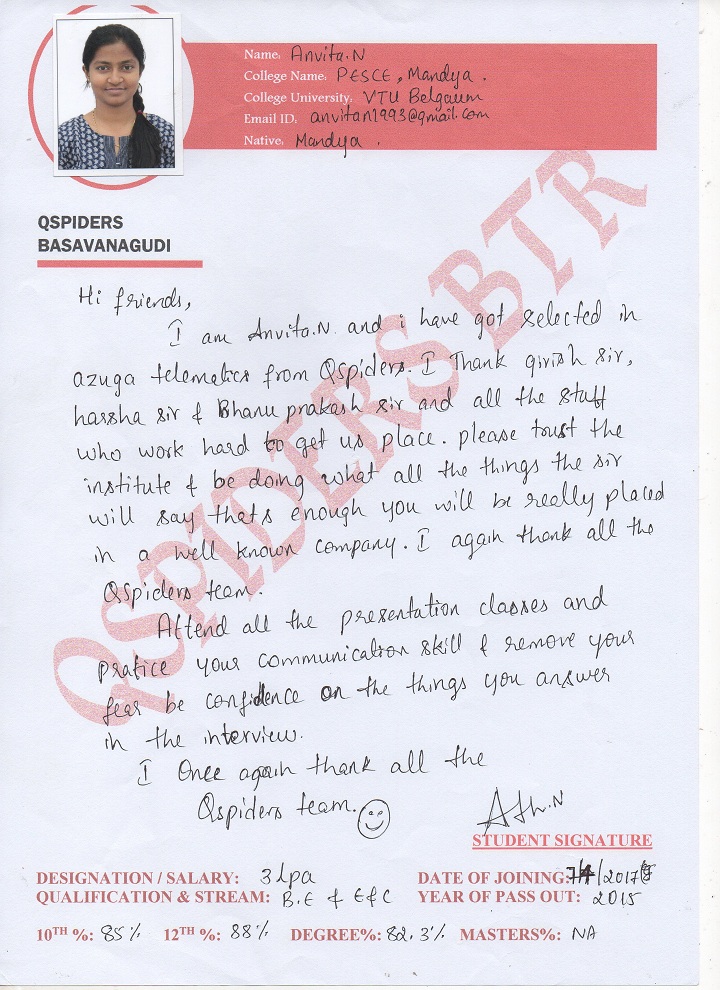 Name: Anvita.N
College Name: PESCE, Mandya.
College University: VTU Belgaum
Email ID: anvitan1993@gmail.com
Native: Mandya.
QSPIDERS
BASAVANAGUDI
QSPIDERS BTR
Hi friends,
I am Anvita.N. and i have got selected in
azuga telematics from Qspiders. I Thank girish sir,
harsha sir & Bhanu prakash sir and all the staff
who work hard to get us place. please trust the
institute & be doing what all the things the sir
will say thats enough you will be really placed
in a well known company. I again thank all the
Qspiders team.
Attend all the presentation classes and
pratice your communication skill & remove your
fear be confidence on the things you answer
in the interview.
I Once again thank all the
Qspiders team.
STUDENT SIGNATURE
DESIGNATION / SALARY: 3lpa
DATE OF JOINING: /2017
QUALIFICATION & STREAM: B.E & E&C
YEAR OF PASS OUT: 2015
10TH %: 85% 12TH %: 88% DEGREE%: 82.3% MASTERS%: NA